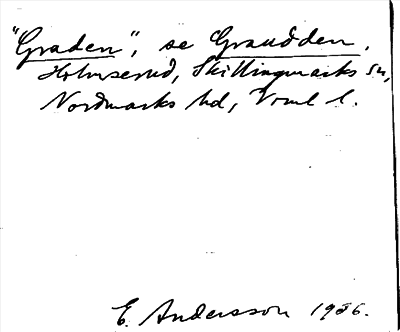 "Graden", se Grandden.
Holmserud, Skillingmarks sn,
Nordmarks hd, Vrml l.
E. Andersson 1986.